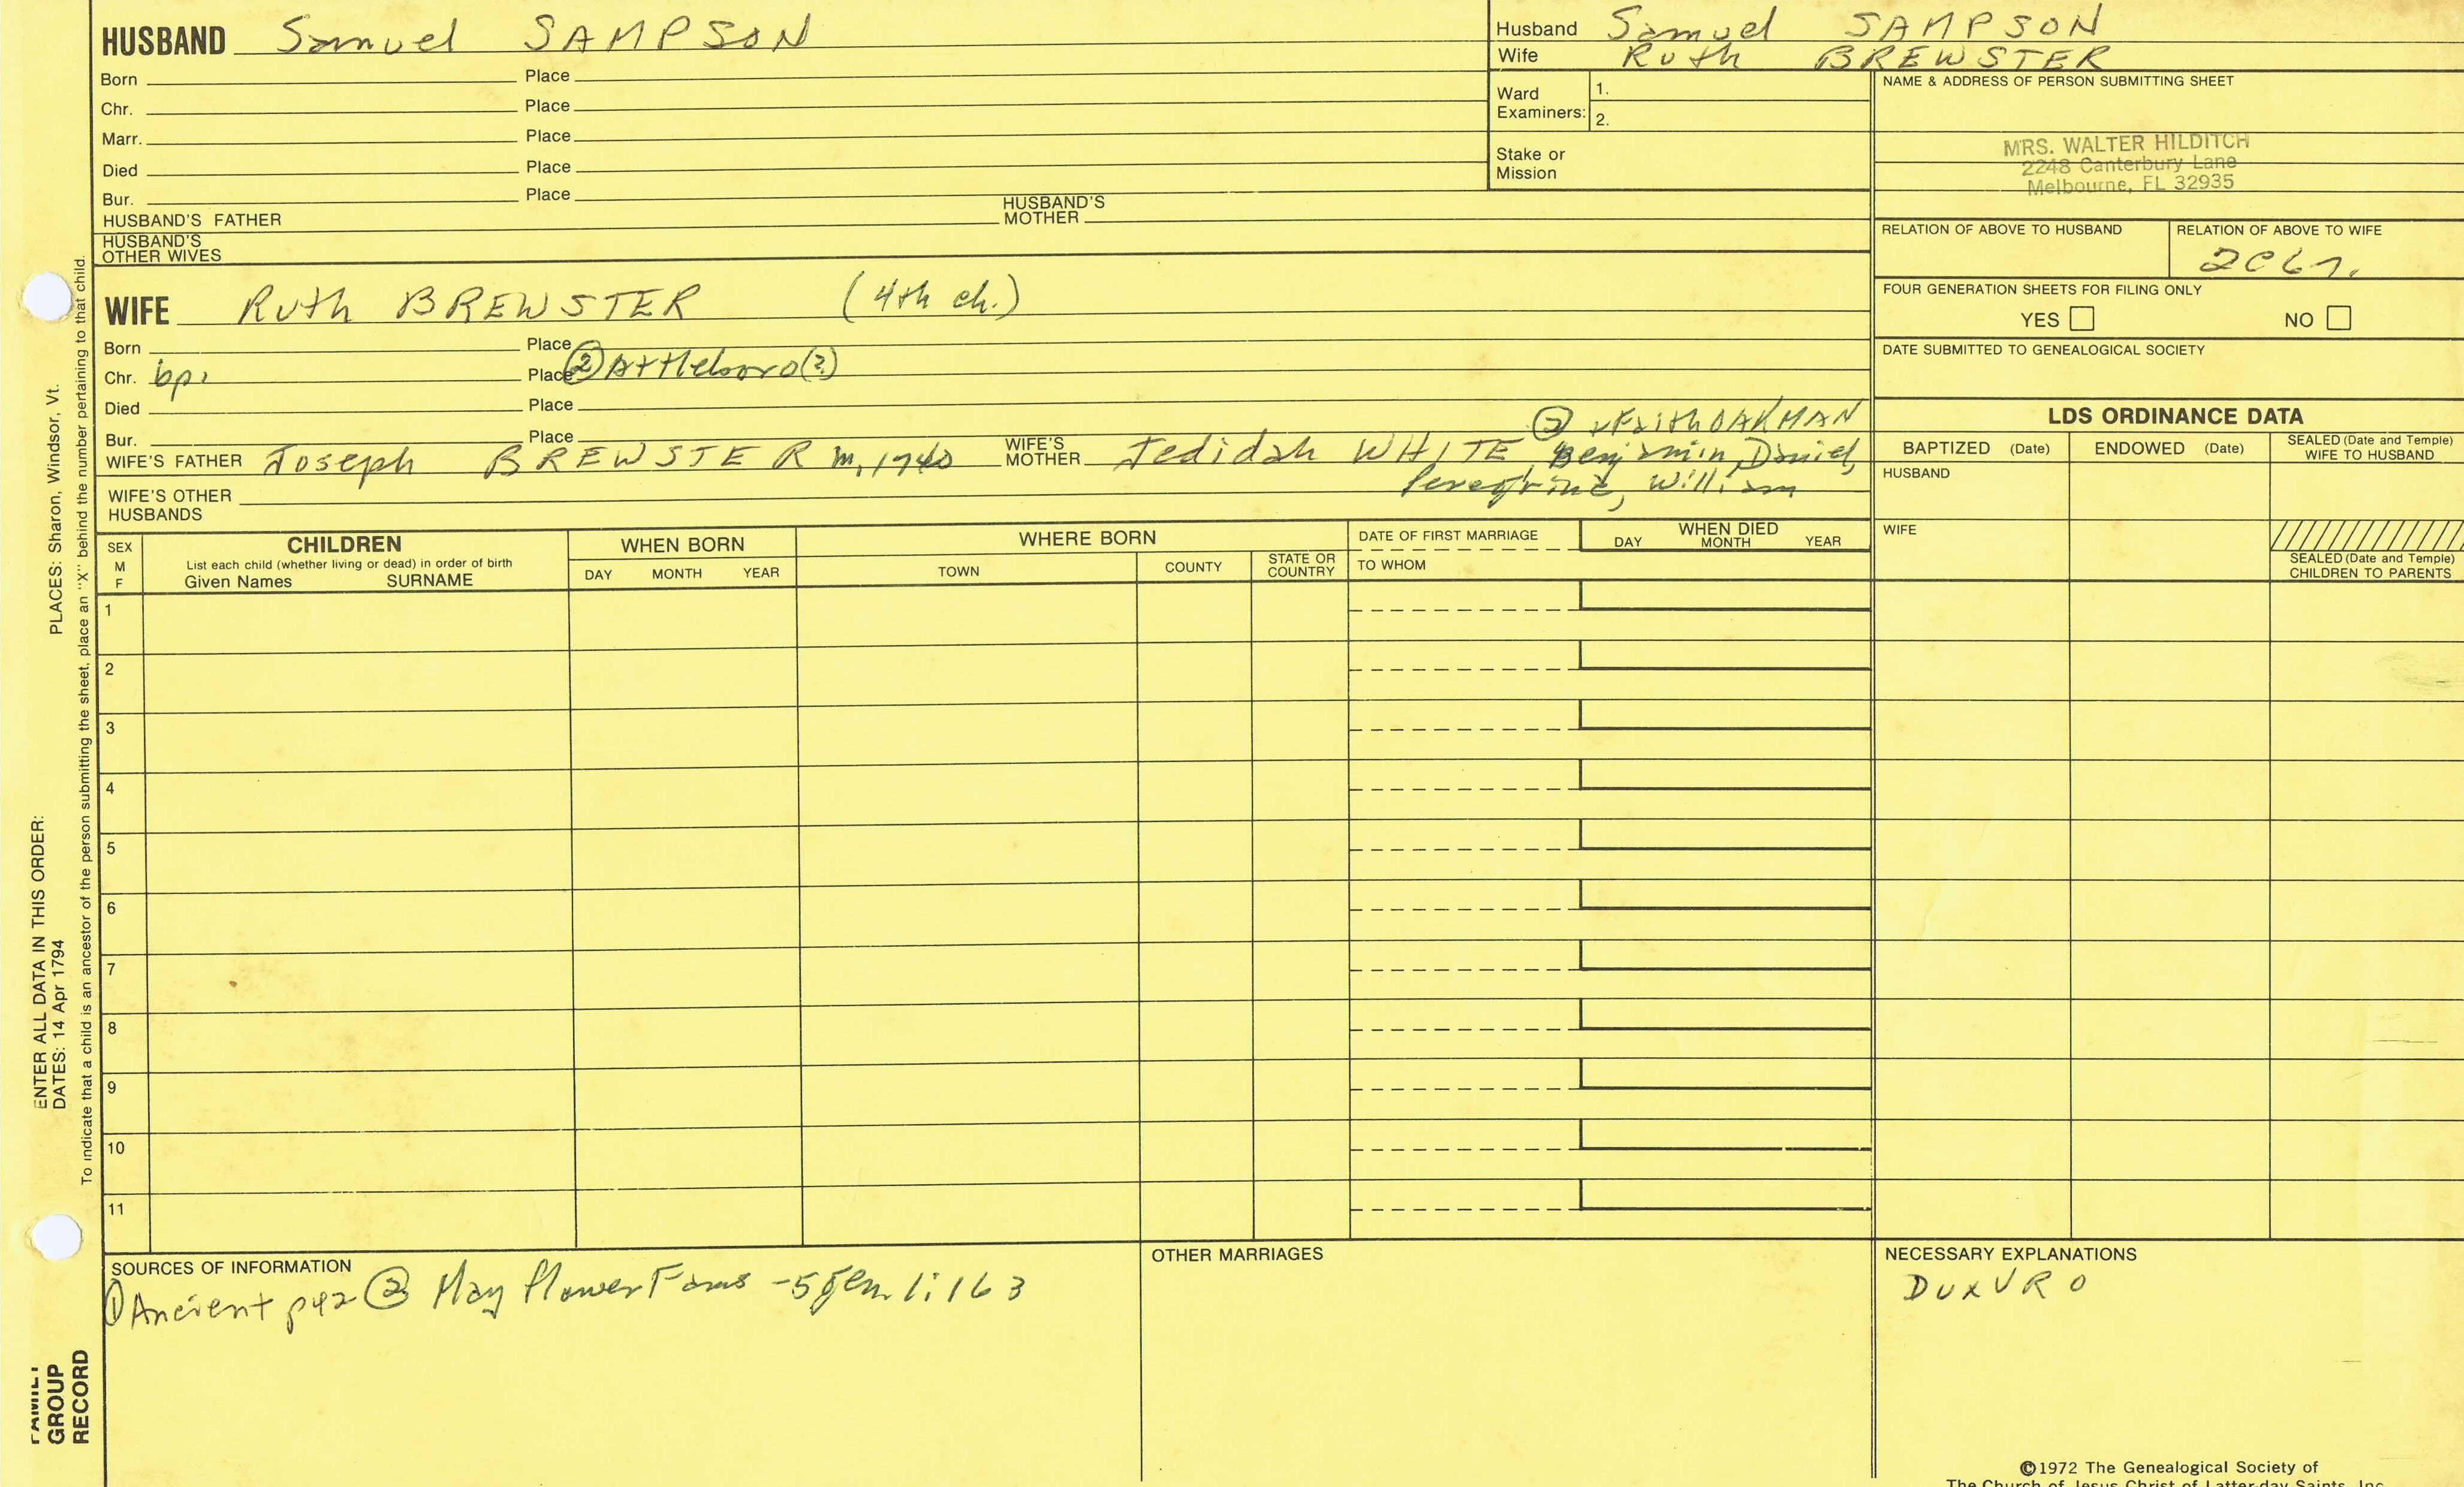 HUSBAND Samuel SAMPSON
Born Place
Chr. Place
Marr. Place
Died Place
Bur. Place
HUSBAND'S FATHER HUSBAND'S MOTHER
HUSBAND'S OTHER WIVES
Husband Samuel SAMPSON
Wife Ruth BREWSTER
Ward Examiners: 1.
2.
Stake or Mission
NAME & ADDRESS OF PERSON SUBMITTING SHEET
MRS. WALTER HILDITCH
2248 Canterbury Lane
Melbourne, FL 32935
RELATION OF ABOVE TO HUSBAND RELATION OF ABOVE TO WIFE
FOUR GENERATION SHEETS FOR FILING ONLY
YES NO
DATE SUBMITTED TO GENEALOGICAL SOCIETY
WIFE Ruth BREWSTER (4th ch.)
Born Place
Chr. bp. Place ② Attleboro(?)
Died Place
Bur. Place
② Faith OAKMAN
WIFE'S FATHER Joseph BREWSTER m. 1740 WIFE'S MOTHER Jedidah WHITE, Benjamin, Daniel,
Peregrine, William
WIFE'S OTHER HUSBANDS
LDS ORDINANCE DATA
BAPTIZED (Date) ENDOWED (Date) SEALED (Date and Temple) WIFE TO HUSBAND
HUSBAND
WIFE
SEALED (Date and Temple) CHILDREN TO PARENTS
SEX M F
CHILDREN
List each child (whether living or dead) in order of birth
Given Names SURNAME
WHEN BORN
DAY MONTH YEAR
WHERE BORN
TOWN COUNTY STATE OR COUNTRY
DATE OF FIRST MARRIAGE
TO WHOM
WHEN DIED
DAY MONTH YEAR
1
2
3
4
5
6
7
8
9
10
11
SOURCES OF INFORMATION
① Ancient p42 ② MayFlower Fams -5 Gen 1:163
OTHER MARRIAGES
NECESSARY EXPLANATIONS
DuxVR 0
©1972 The Genealogical Society of
The Church of Jesus Christ of Latter-day Saints, Inc.
ENTER ALL DATA IN THIS ORDER:
DATES: 14 Apr 1794 PLACES: Sharon, Windsor, Vt.
To indicate that a child is an ancestor of the person submitting the sheet, place an "X" behind the number pertaining to that child.
FAMILY
GROUP
RECORD